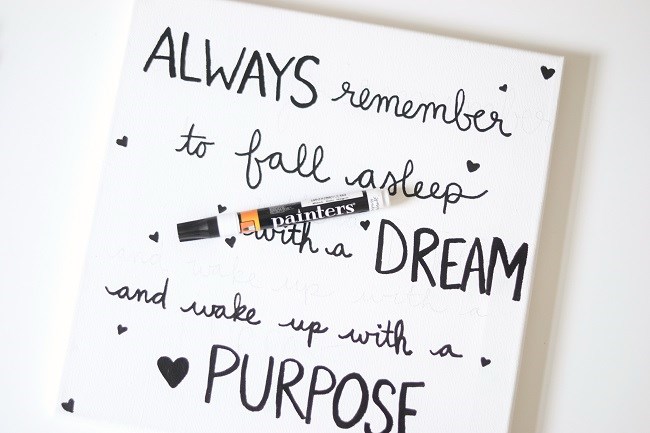 ALWAYS remember
to fall asleep
painters
with a DREAM
and wake up with a
PURPOSE